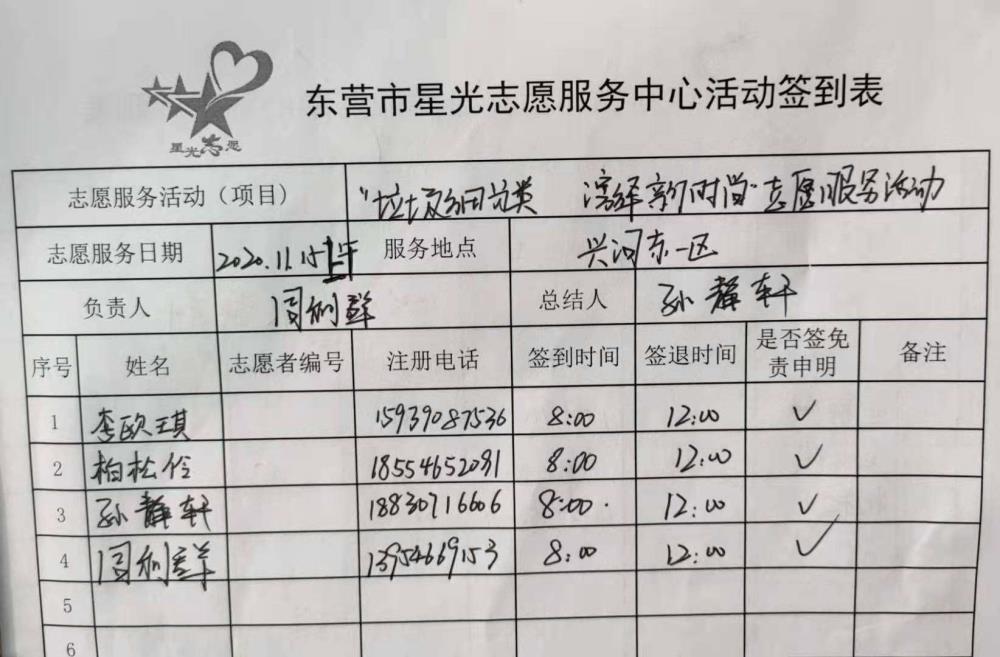 星光志愿
东营市星光志愿服务中心活动签到表
志愿服务活动（项目） “垃圾分类 演绎新时尚”志愿服务活动
志愿服务日期 2020.11.15上午 服务地点 兴河东一区
负责人 周利群 总结人 孙静轩
序号 姓名 志愿者编号 注册电话 签到时间 签退时间 是否签免责申明 备注
1 李欧琪 15939087536 8:00 12:00 ✓
2 柏松伶 18554652031 8:00 12:00 ✓
3 孙静轩 18830716606 8:00 12:00 ✓
4 周利群 13954669153 8:00 12:00 ✓
5
6